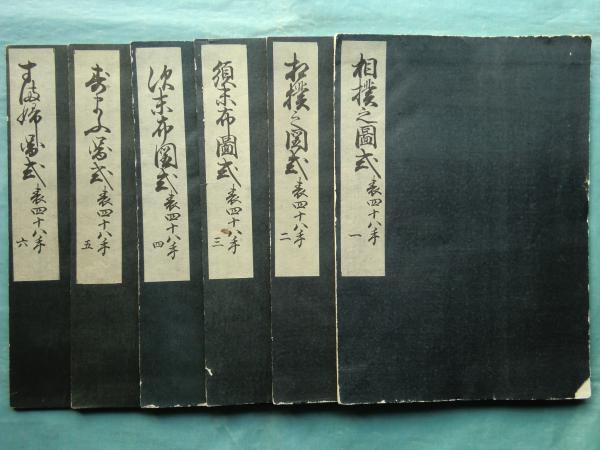 相撲之圖式 表四十八手 一
相撲之図式 表四十八手 二
須末布圖式 表四十八手 三
次末布図式 表四十八手 四
図式 表四十八手 五
図式 表四十八手 六